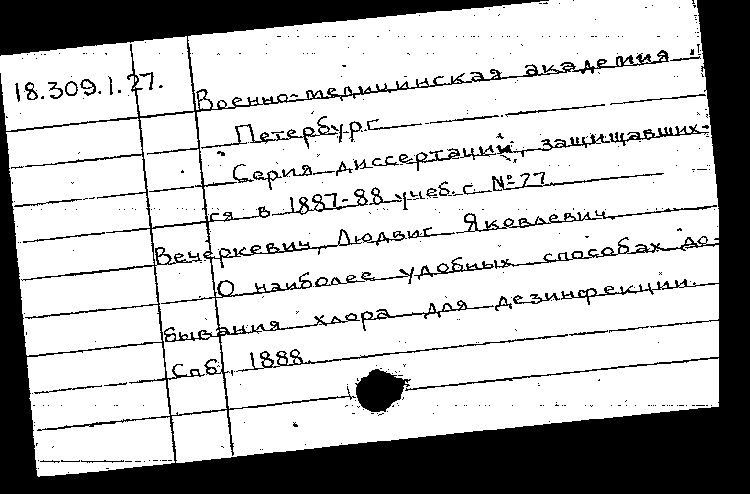 18.309.1.27.
Военно-медицинская академия.
Петербург
Серия диссертаций, защищавших-
ся в 1887-88 учеб. г №27
Вечеркевич, Людвиг Яковлевич.
О наиболее удобных способах до-
бывания хлора для дезинфекции.
Спб, 1888.